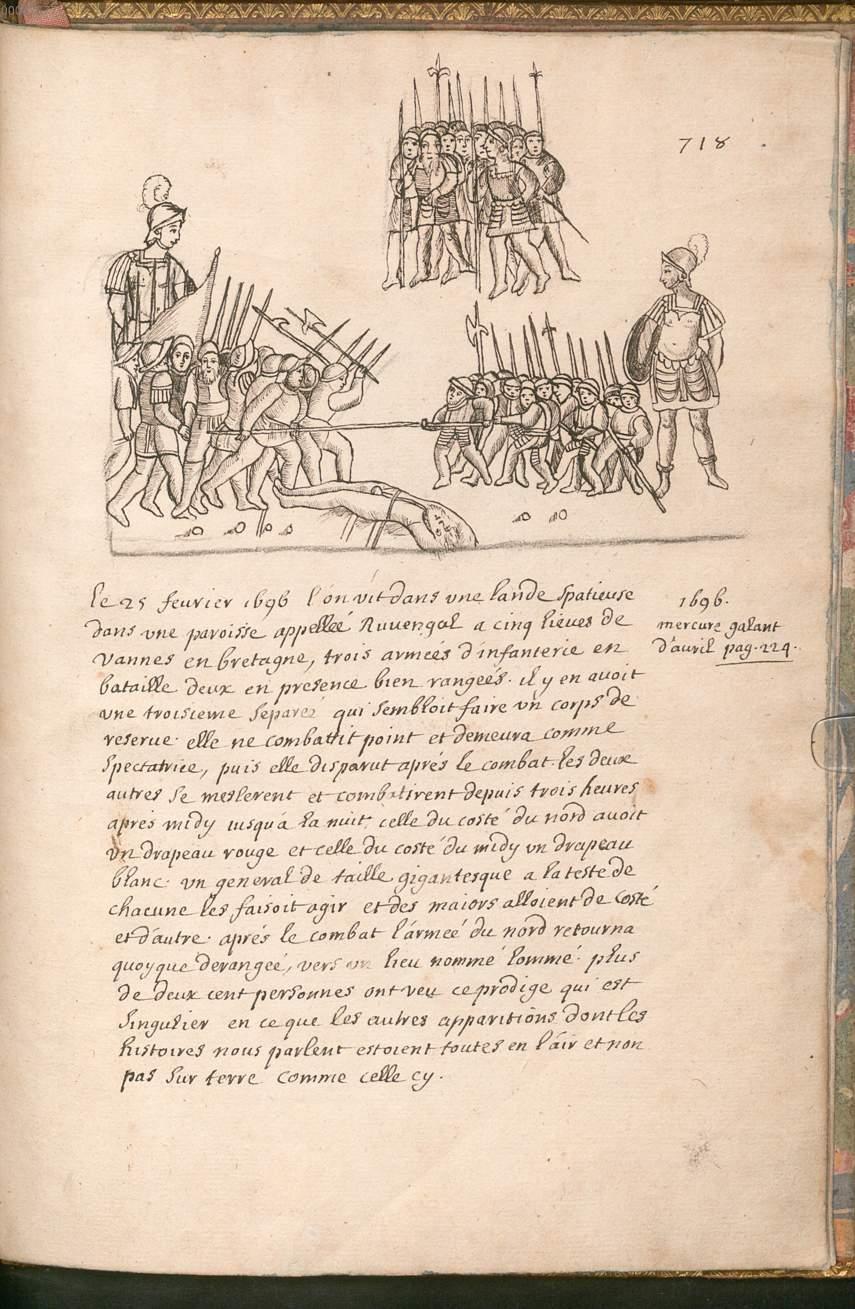 718
le 25 feurier 1696 l'on vit dans vne lande spatieuse
dans vne paroisse appelleé Ruuengal a cinq lieves de
vannes en bretagne, trois armeés d'infanterie en
bataille deux en presence bien rangeés. il y en auoit
vne troisieme separeé qui sembloit faire vn corps de
reserue. elle ne combattit point et demeura comme
spectatrice, puis elle disparut aprés le combat. les deux
autres se meslerent et combatirent depuis trois heures
aprés midy iusqu'a la nuit. celle du costé du nord auoit
vn drapeau rouge et celle du costé du midy vn drapeau
blanc. vn general de taille gigantesque a la teste de
chacune les faisoit agir et des maiors alloient de costé
et d'autre. aprés le combat l'armeé du nord retourna
quoyque derangeé, vers vn lieu nommé lommé. plus
de deux cent personnes ont veu ce prodige qui est
singulier en ce que les autres apparitions dont les
histoires nous parlent estoient toutes en l'air et non
pas sur terre comme celle cy.
1696.
mercure galant
d'auril pag. 224.